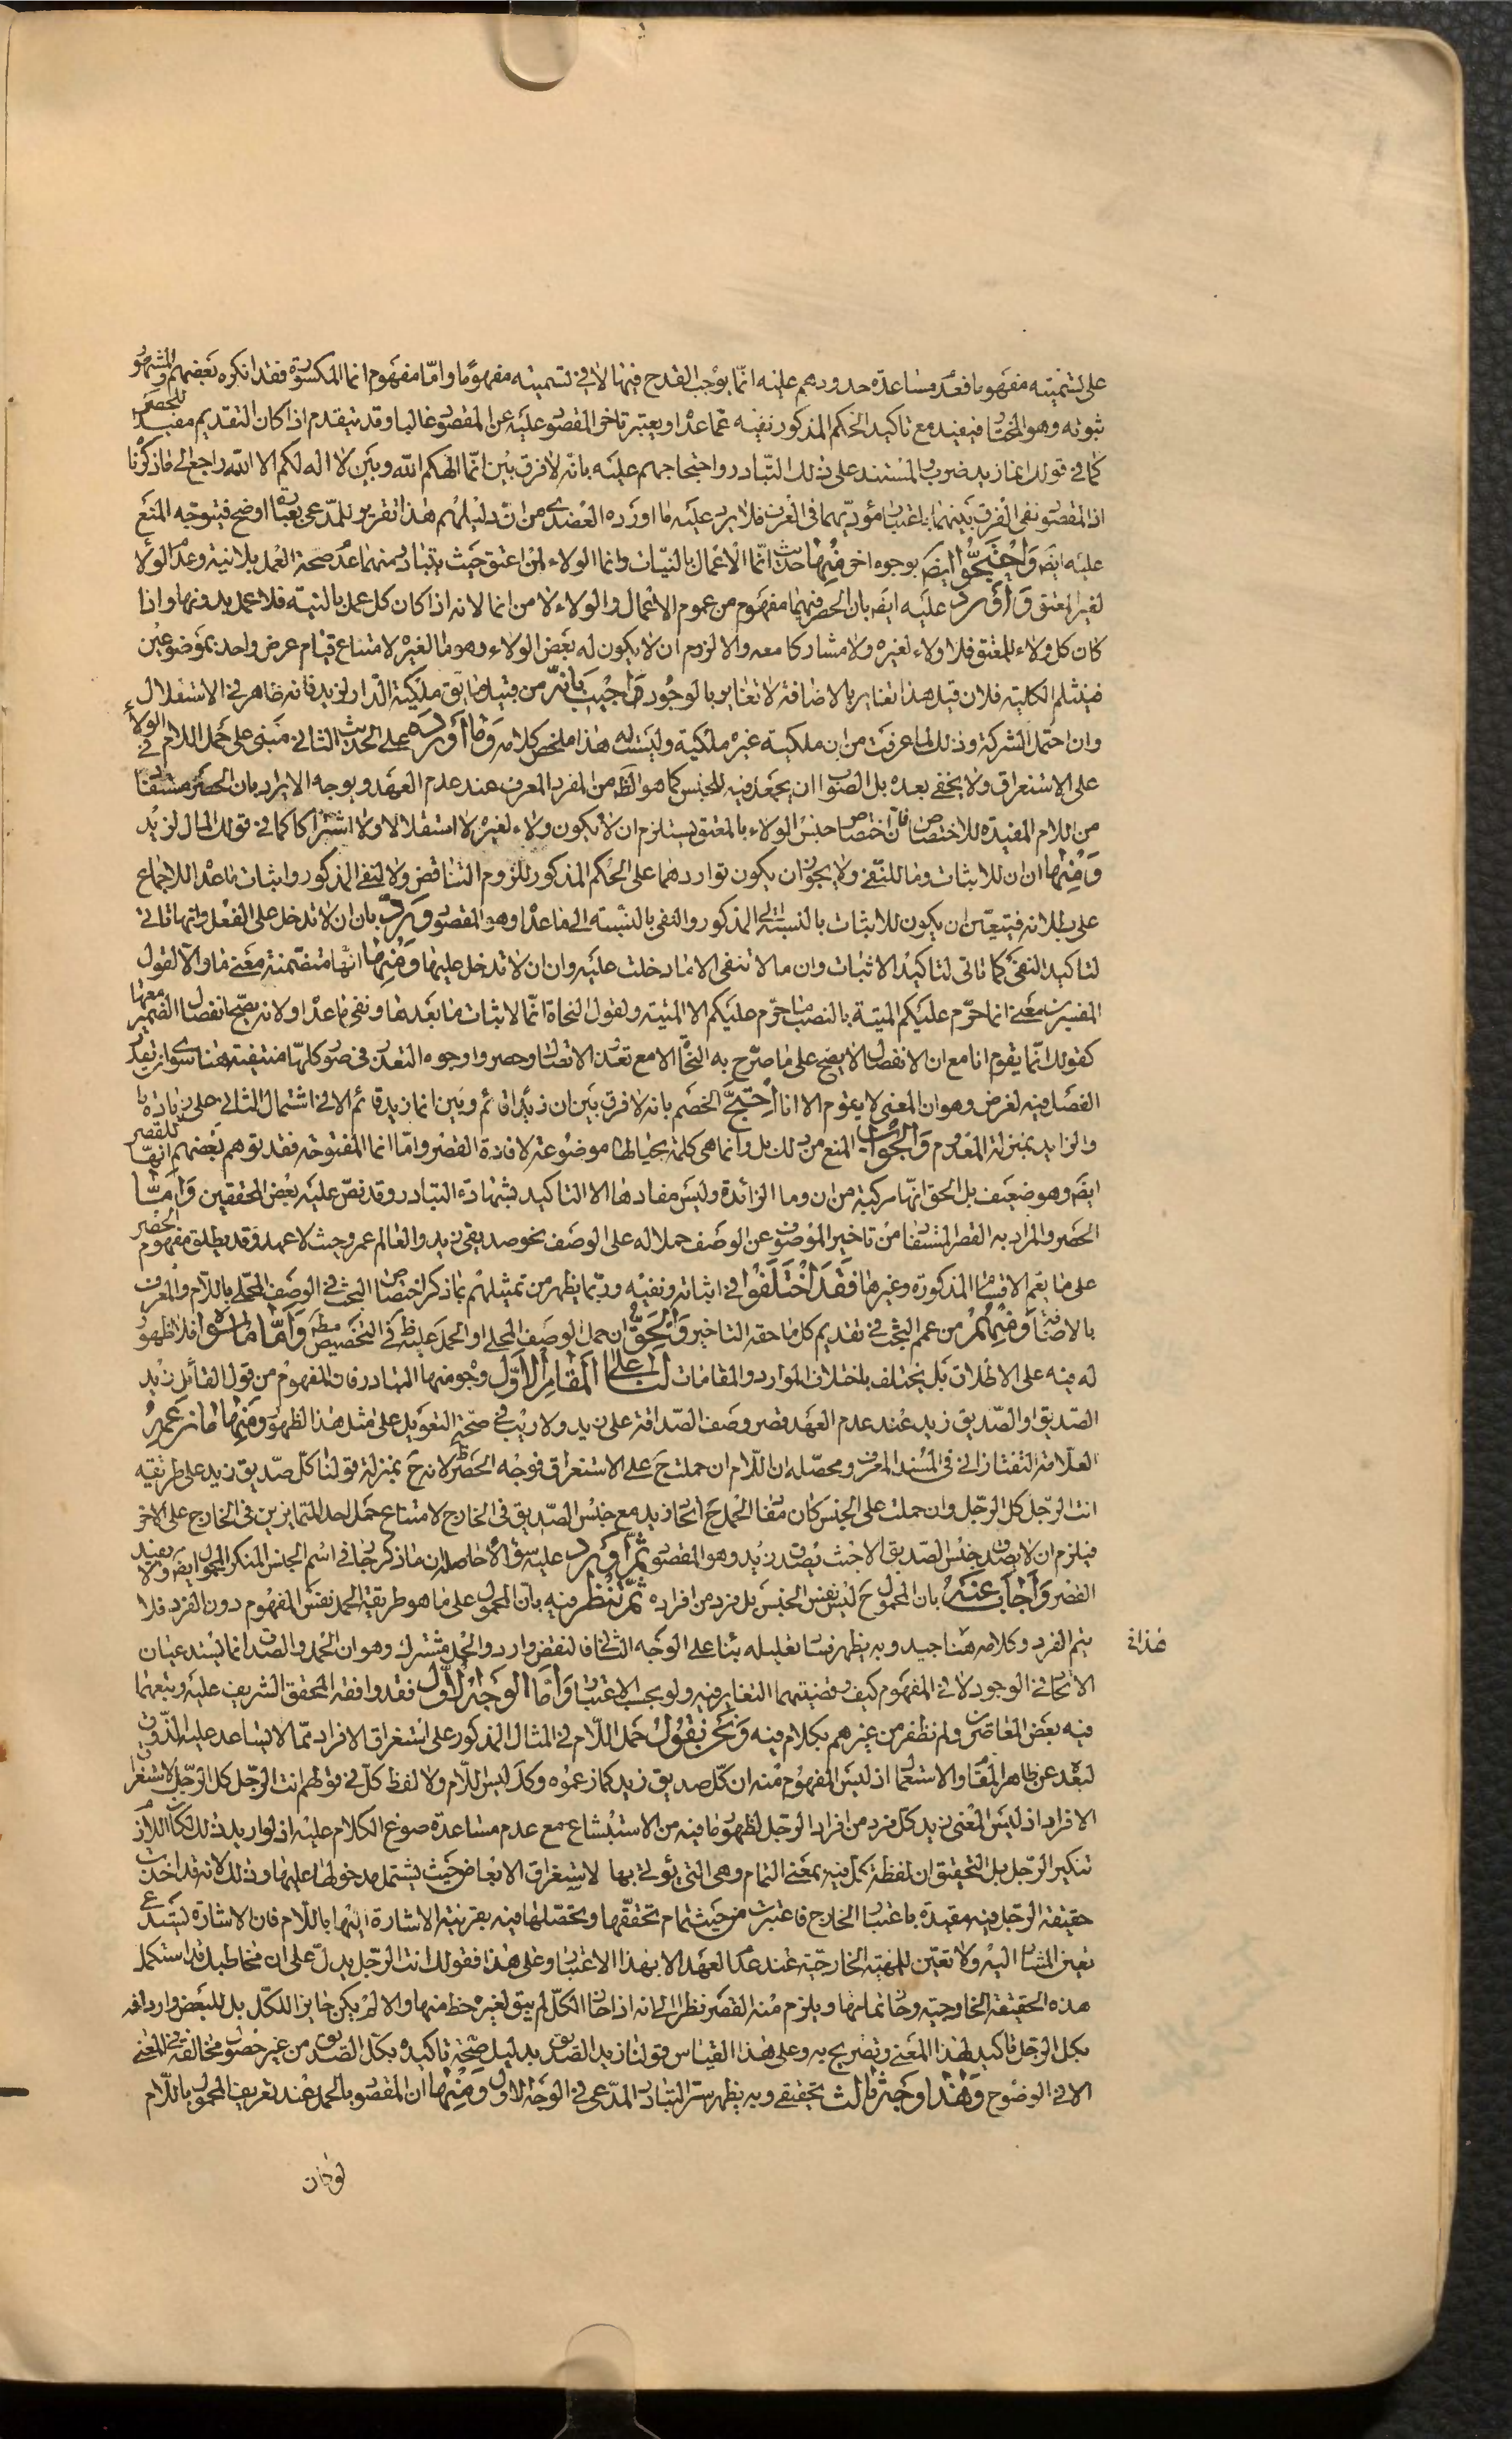 على تسميته مفهوما فعدم مساعدة حدودهم عليه انما يوجب القدح فيها لا في تسميته مفهوما واما مفهوم انما المكسورة فقد انكره بعضهم والمشهور
ثبوته وهو المختار فيفيد مع تاكيد الحكم المذكور نفيه عما عداه ويعتبر تاخر المقصور عليه عن المقصور غالبا وقد يتقدم اذا كان التقديم مفيدا للحصر
كما في قولك انما زيد ضرب والمستند على ذلك التبادر واحتجاجهم عليه بانه لا فرق بين انما الهكم الله وبين لا اله لكم الا الله راجع الى ما ذكرنا
اذ المقصود نفى الفرق بينهما باعتبار مؤديهما فى العرف فلا يرد عليه ما اورده العضدى من ان دليلهم هذا تقرير للمدعى بعبارة اوضح فيتوجه المنع
عليه ايضا وَاحْتَجُّوا ايضا بوجوه اخر مِنْهَا حديث انما الاعمال بالنيات وانما الولاء لمن اعتق حيث يتبادر منهما عدم صحة العمل بلا نية وعدم الولاء
لغير المعتق وَأُورِدَ عليه ايضا بان الحصر فيهما مفهوم من عموم الاعمال والولاء لا من انما لانه اذا كان كل عمل بالنية فلا عمل بدونها واذا
كان كل ولاء للمعتق فلا ولاء لغيره ولا مشاركا معه والا لزوم ان لا يكون له بعض الولاء وهو ما لغيره لامتناع قيام عرض واحد بموضوعين
فينثلم الكلية فلان قيل هذا تغاير بالاضافة لا تغاير بالوجود وَأُجِيبَ بانه من قبيل ما يق ملكية الدار لزيد فانه ظاهر في الاستقلال
وان احتمل الشركة وذلك لما عرفت من ان ملكيته غير ملكية وليست له هذا ملخص كلامه وَمَا أَوْرَدَهُ على الحديث الثاني مبنى على حمل اللام في الولاء
على الاستغراق ولا يخفى بعده بل الصواب ان يجعل فيه للجنس كما هو الظ من المفرد المعرف عند عدم العهد ويوجه الايراد بان الحصر مستفاد
من اللام المفيدة للاختصاص فان اختصاص جنس الولاء بالمعتق يستلزم ان لا يكون ولاء لغيره لا استقلالا ولا اشتراكا كما في قولك المال لزيد
وَمِنْهَا ان ان للاثبات وما للنفى ولا يجوز ان يكون تواردهما على الحكم المذكور للزوم التناقض ولا لنفى المذكور واثبات ما عداه للاجماع
على بطلانه فيتعين ان يكون للاثبات بالنسبة الى المذكور والنفى بالنسبة الى ما عداه وهو المقصود وَرُدَّ بان ان لا تدخل على الفعل وانها تاتى
لتاكيد النفى كما تاتى لتاكيد الاثبات وان ما لا تنفى الا ما دخلت عليه وان ان لا تدخل عليها وَمِنْهَا انها متضمنة معنى ما والا لقول
المفسرين معنى انما حرم عليكم الميتة بالنصب ما حرم عليكم الا الميتة ولقول النحاة انما لاثبات ما بعدها ونفى ما عداه ولانه يصح انفصال الضمير معها
كقولك انما يقوم انا مع ان الانفصال لا يصح على ما صرح به النحاة الا مع تعذر الاتصال وحصروا وجوه التعذر فى صور كلها منتفية هنا سوى ان يقدر
الفصل فيه لغرض وهو ان المعنى لا يقوم الا انا اِحْتَجَّ الخصم بانه لا فرق بين ان زيدا قائم وبين انما زيد قائم الا فى اشتمال الثانى على زيادة ما
والزايد بمنزلة المعدوم وَالْجَوَابُ المنع من ذلك بل وانما هى كلمة بحيالها موضوعة لافادة القصر واما انما المفتوحة فقد توهم بعضهم انها للقصر
ايضا وهو ضعيف بل الحق انها مركبة من ان وما الزائدة وليس مفادها الا التاكيد بشهادة التبادر وقد نص عليه بعض المحققين وَأَمَّا
الحصر والمراد به القصر المستفاد من تاخير الموصوف عن الوصف حملا له على الوصف نحو صديقى زيد والعالم عمرو حيث لا عهد وقد يطلق مفهوم الحصر
على ما يعم الاقسام المذكورة وغيرها فَقَدِ اخْتَلَفُوا في اثباته ونفيه وربما يظهر من تمثيلهم بما ذكر اختصاص البحث فى الوصف المحلى باللام والمعرف
بالاضافة وَمِنْهُمْ من عمم البحث في تقديم كل ما حقه التاخير وَالْحَقُّ ان حمل الوصف المحلى او الحمل عليه ظ فى التخصيص مطلقا وَأَمَّا ما سواه فلا ظهور
له فيه على الاطلاق بل يختلف باختلاف الموارد والمقامات لَنَا عَلَى الْمَقَامِ الْأَوَّلِ وجوه منها التبادر فان المفهوم من قول القائل زيد
الصديق او الصديق زيد عند عدم العهد قصر وصف الصداقة على زيد ولا ريب في صحة التعويل على مثل هذا الظهور وَمِنْهَا ما زعمه
العلامة التفتازانى فى المسند المعرف ومحصله ان اللام ان حملت ح على الاستغراق فوجه الحصر ظ لانه ح بمنزلة قولنا كل صديق زيد على طريقة
انت الرجل كل الرجل وان حملت على الجنس كان مفاد الحمل ح اتحاد زيد مع جنس الصديق فى الخارج لامتناع حمل احد المتمايزين فى الخارج على الاخر
فيلزم ان لا يصدق جنس الصديق الا حيث يصدق زيد وهو المقصود ثُمَّ أَوْرَدَ عليه سؤالا حاصله ان ما ذكر جار في اسم الجنس المنكر المحمول ايضا ولا يفيد
القصر وَأَجَابَ عَنْهُ بان المحمول ح ليس نفس الجنس بل فرد من افراده ثُمَّ تَنَظَّرَ فيه بان المحمول على ما هو طريقة الحمل نفس المفهوم دون الفرد فلا
يتم الفرد وكلامه هنا جيد وبه يظهر فساد تعليله بناء على الوجه الثانى فالنقض وارد والحل مشترك وهو ان الحمل والصدق انما يستدعيان
هذا فى
الاتحاد في الوجود لا فى المفهوم كيف وقضيتهما التغاير فيه ولو بحسب الاعتبار وَأَمَّا الْوَجْهُ الْأَوَّلُ فقد وافقه المحقق الشريف عليه وتبعهما
فيه بعض المعاصرين ولم نظفر من غيرهم بكلام فيه وَنَحْنُ نَقُولُ حمل اللام فى المثال المذكور على استغراق الافراد مما لا يساعد عليه الذوق
لبعده عن ظاهر المقام والاستعمال اذ ليس المفهوم منه ان كل صديق زيد كما زعموه وكذا ليس اللام ولا لفظ كل في قولهم انت الرجل كل الرجل لاستغراق
الافراد اذ ليس المعنى زيد كل فرد من افراد الرجل لظهور ما فيه من الاستبشاع مع عدم مساعدة صوغ الكلام عليه اذ لو اريد ذلك لكان اللازم
تنكير الرجل بل التحقيق ان لفظة كل فيه بمعنى التمام وهى التى يؤتى بها لاستغراق الابعاض حيث يشتمل مدخولها عليها وذلك لانه قد اخذت
حقيقة الرجل فيه مقيدة باعتبار الخارج فاعتبرت من حيث تمام تحققها وتحصلها فيه بقرينة الاشارة اليها باللام فان الاشارة تستدعى
تعين المشار اليه ولا تعين للمهية الخارجية عند عدم العهد الا بهذا الاعتبار وعلى هذا فقولك انت الرجل يدل على ان مخاطبك قد استكمل
هذه الحقيقة الخارجية وحاز تمامها ويلزم منه القصر نظرا الى انه اذا حاز الكل لم يبق لغيره حظ منها والا لم يكن حايز الكل بل للبعض وارداف
بكل الرجل تاكيد لهذا المعنى وتصريح به وعلى هذا القياس قولنا زيد الصديق بدليل صحة تاكيده بكل الصديق من غير حصول مخالفة فى المعنى
الا في الوضوح وَهٰذَا وجه ثالث تحقيقى وبه يظهر سر التبادر المدعى فى الوجه الاول وَمِنْهَا ان المقصود بالحمل عند تعريف المحمول باللام
لو كان